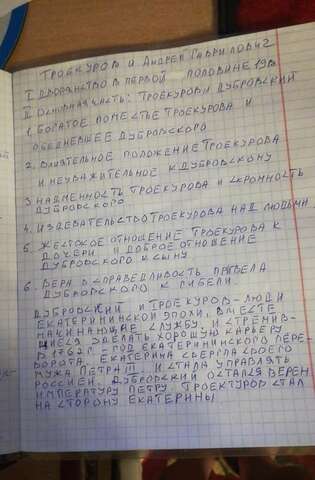 ТРОЕКУРОВ И АНДРЕЙ ГАВРИЛОВИЧ
I ДВОРЯНСТВО В ПЕРВОЙ ПОЛОВИНЕ 19В
II ОСНОВНАЯ ЧАСТЬ: ТРОЕКУРОВ И ДУБРОВСКИЙ
1. БОГАТОЕ ПОМЕСТЬЕ ТРОЕКУРОВА И
ОБЕДНЕВШЕЕ ДУБРОВСКОГО
2. ВЛИЯТЕЛЬНОЕ ПОЛОЖЕНИЕ ТРОЕКУРОВА
И НЕУВАЖИТЕЛЬНОЕ К ДУБРОВСКОМУ
3. НАДМЕННОСТЬ ТРОЕКУРОВА И СКРОМНОСТЬ
ДУБРОВСКОГО
4. ИЗДЕВАТЕЛЬСТВО ТРОЕКУРОВА НАД ЛЮДЬМИ
5. ЖЕСТОКОЕ ОТНОШЕНИЕ ТРОЕКУРОВА К
ДОЧЕРИ И ДОБРОЕ ОТНОШЕНИЕ
ДУБРОВСКОГО К СЫНУ
6. ВЕРА В СПРАВЕДЛИВОСТЬ ПРИВЕЛА
ДУБРОВСКОГО К ГИБЕЛИ.
ДУБРОВСКИЙ И ТРОЕКУРОВ-ЛЮДИ
ЕКАТЕРИНИНСКОЙ ЭПОХИ, ВМЕСТЕ
НАЧИНАЮЩИЕ СЛУЖБУ, И СТРЕМИВ-
ШИЕСЯ СДЕЛАТЬ ХОРОШУЮ КАРЬЕРУ
В 1762 Г - ГОД ЕКАТЕРИНИНСКОГО ПЕРЕ-
ВОРОТА. ЕКАТЕРИНА СВЕРГЛА СВОЕГО
МУЖА ПЕТРА III И СТАЛА УПРАВЛЯТЬ
РОССИЕЙ. ДУБРОВСКИЙ ОСТАЛСЯ ВЕРЕН
ИМПЕРАТОРУ ПЕТРУ. ТРОЕКУРОВ СТАЛ
НА СТОРОНУ ЕКАТЕРИНЫ